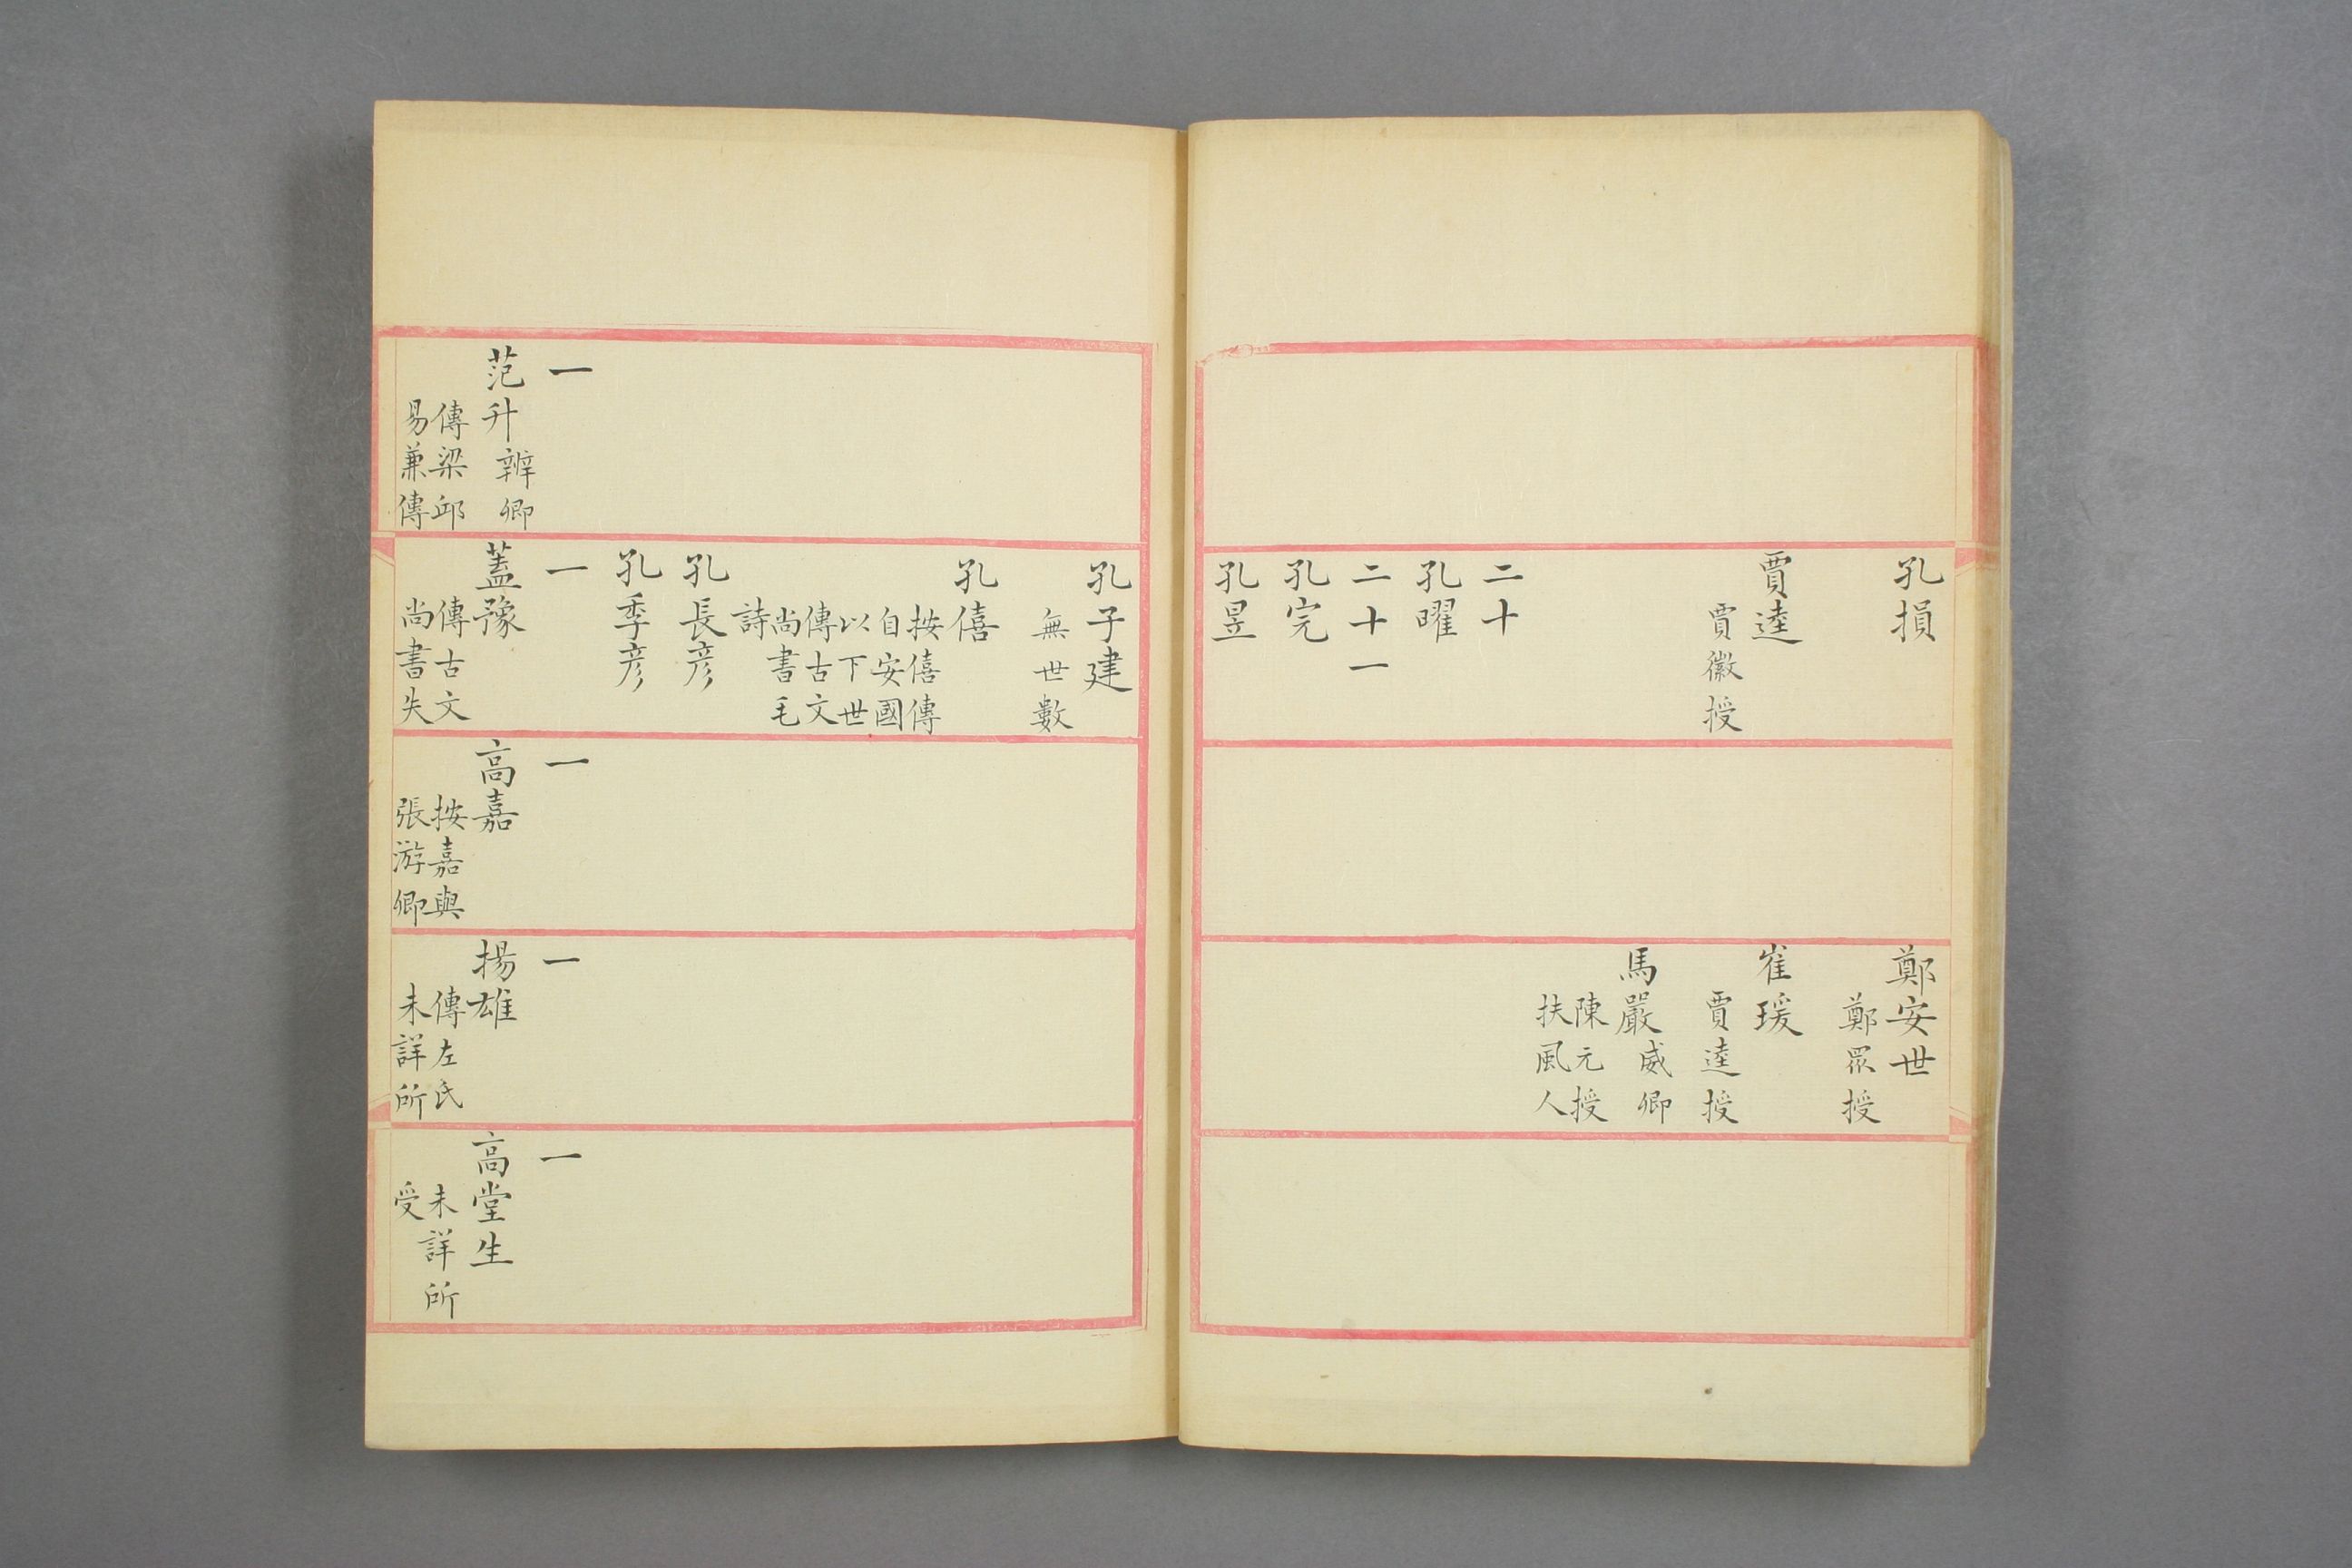 孔損
賈逵
賈徽授
二十
孔曜
二十一
孔完
孔昱
鄭安世
鄭眾授
崔瑗
賈逵授
馬嚴威卿
陳元授
扶風人
一
范升辨卿
傳梁邱
易兼傳
孔子建
無世數
孔僖
按僖傳
自安國
以下世
傳古文
尚書毛
詩
孔長彦
孔季彦
一
蓋豫
傳古文
尚書失
一
高嘉
按嘉與
張游卿
一
揚雄
傳左氏
未詳所
一
高堂生
未詳所
受